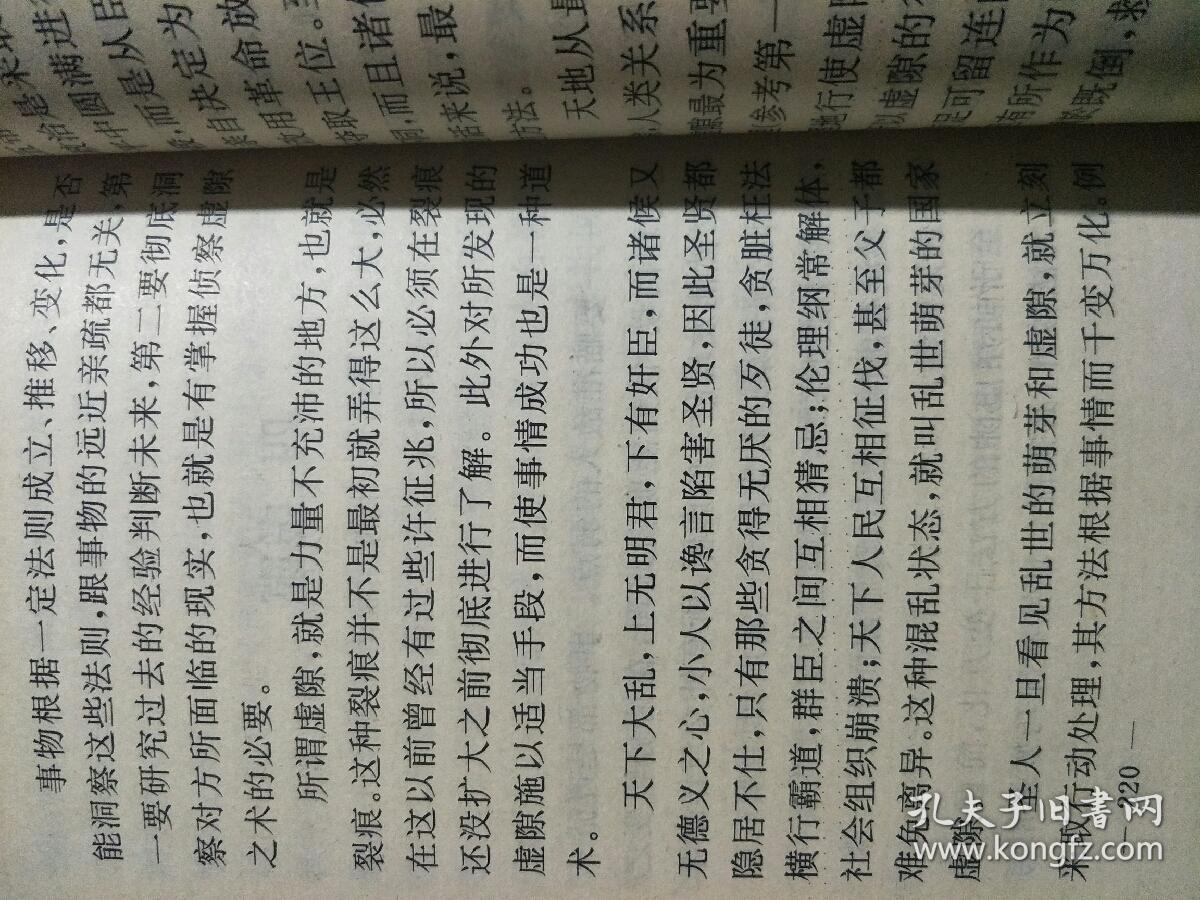 事物根据一定法则成立、推移、变化,是否
能洞察这些法则,跟事物的远近亲疏都无关,第
一要研究过去的经验判断未来,第二要彻底洞
察对方所面临的现实,也就是有掌握侦察虚隙
之术的必要。
所谓虚隙,就是力量不充沛的地方,也就是
裂痕。这种裂痕并不是最初就弄得这么大,必然
在这以前曾经有过些许征兆,所以必须在裂痕
还没扩大之前彻底进行了解。此外对所发现的
虚隙施以适当手段,而使事情成功也是一种道
术。
天下大乱,上无明君,下有奸臣,而诸候又
无德义之心,小人以谗言陷害圣贤,因此圣贤都
隐居不仕,只有那些贪得无厌的歹徒,贪脏枉法
横行霸道,群臣之间互相猜忌;伦理纲常解体,
社会组织崩溃;天下人民互相征伐,甚至父子都
难免离异。这种混乱状态,就叫乱世萌芽的国家
虚隙。
圣人一旦看见乱世的萌芽和虚隙,就立刻
采取行动处理,其方法根据事情而千变万化。例
— 220 —
中圆满进
而是从臣
亲自决定为
改用革命放
取王位。
同,而且诸
话来说,最
方法。
天地从最
人类关系
隙最为重要
参考第一
地行使虚
以虚隙的
足可留连
有所作为
既倒,救
孔夫子旧书网
www.kongfz.com